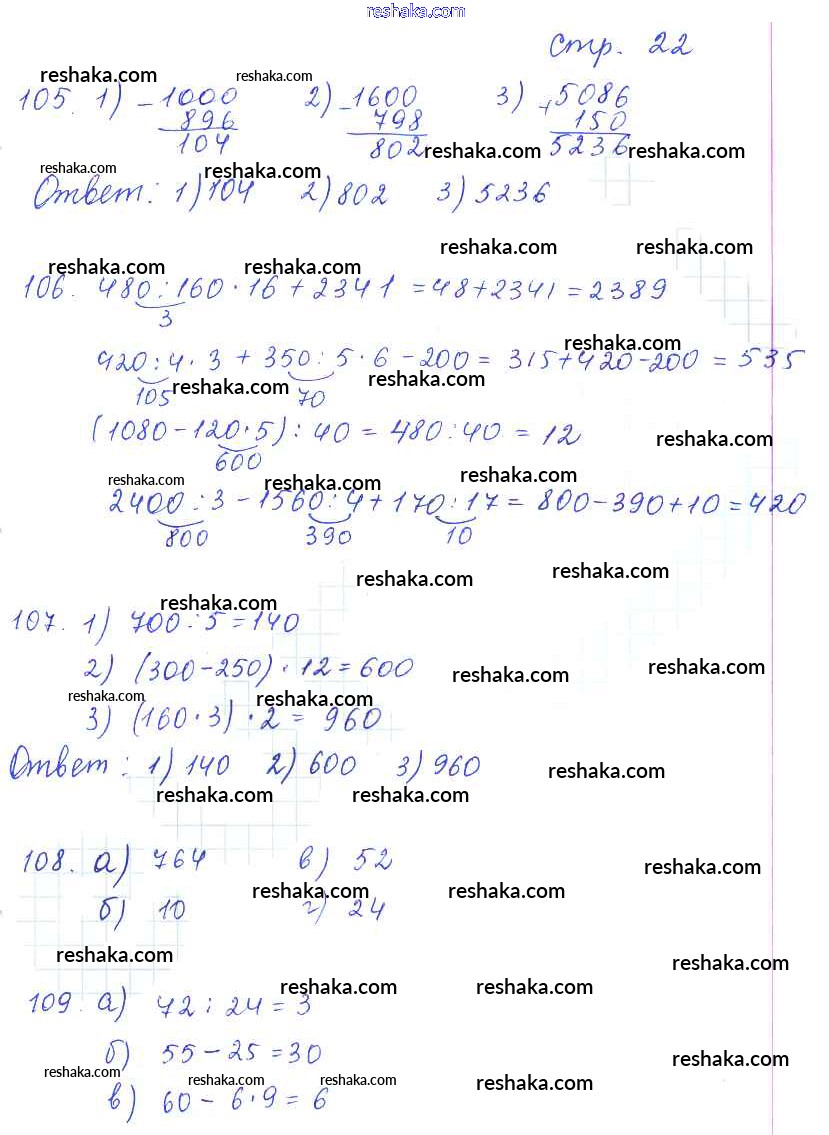 reshaka.com
стр. 22
reshaka.com reshaka.com
105. 1) - 1000 2) - 1600 3) + 5086
896 798 150
104 802 reshaka.com 5236 reshaka.com
reshaka.com reshaka.com
Ответ: 1) 104 2) 802 3) 5236
reshaka.com reshaka.com
reshaka.com reshaka.com
106. 480 : 160 · 16 + 2341 = 48 + 2341 = 2389
3
reshaka.com
420 : 4 · 3 + 350 : 5 · 6 - 200 = 315 + 420 - 200 = 535
105 reshaka.com 70 reshaka.com
(1080 - 120 · 5) : 40 = 480 : 40 = 12 reshaka.com
600
reshaka.com reshaka.com reshaka.com
2400 : 3 - 1560 : 4 + 170 : 17 = 800 - 390 + 10 = 420
800 390 10
reshaka.com reshaka.com
reshaka.com
107. 1) 700 : 5 = 140
2) (300 - 250) · 12 = 600 reshaka.com reshaka.com
reshaka.com reshaka.com
3) (160 · 3) · 2 = 960
Ответ: 1) 140 2) 600 3) 960 reshaka.com
reshaka.com reshaka.com
108. а) 764 в) 52 reshaka.com
reshaka.com reshaka.com
б) 10 г) 24
reshaka.com reshaka.com
reshaka.com reshaka.com
109. а) 72 : 24 = 3
б) 55 - 25 = 30 reshaka.com
reshaka.com reshaka.com reshaka.com reshaka.com
в) 60 - 6 · 9 = 6